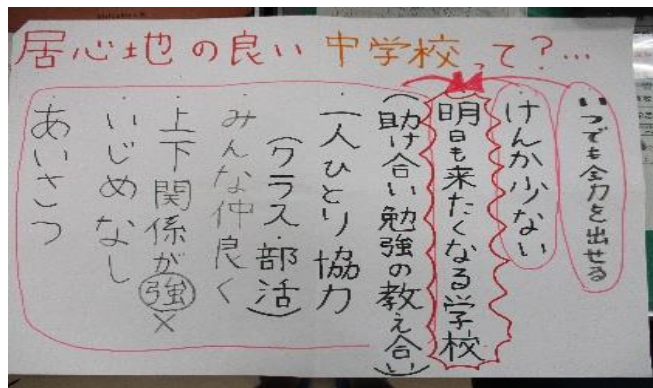 居心地の良い中学校って?…
いつでも全力を出せる
けんか少ない
明日も来たくなる学校
(助け合い勉強の教え合い)
・一人ひとり協力
(クラス・部活)
・みんな仲良く
・上下関係が強×
・いじめなし
・あいさつ